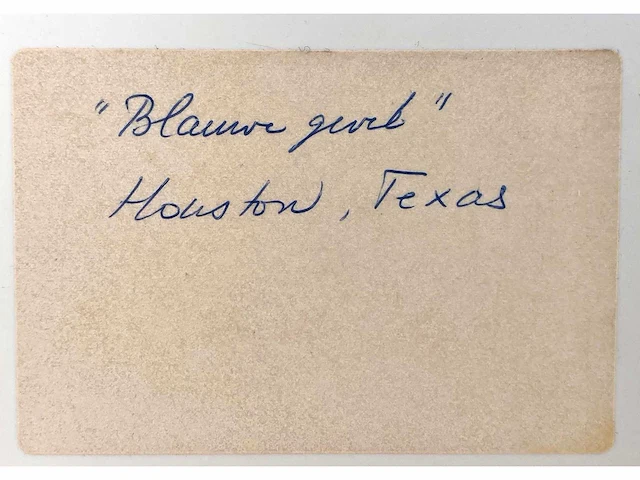 "Blauwe gevel"
Houston, Texas